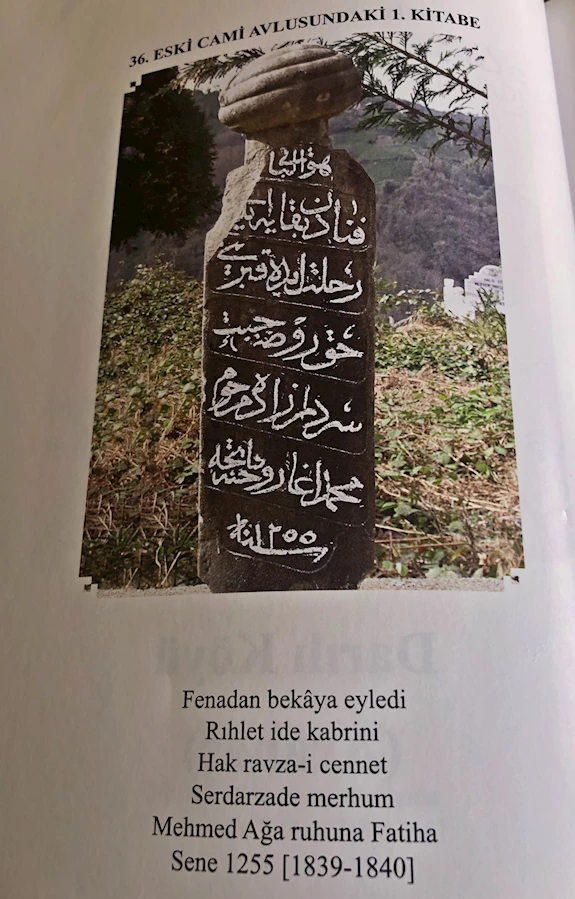 36. ESKİ CAMİ AVLUSUNDAKİ 1. KİTABE
هو الباقی
فنادن بقایه ایلدی
رحلت ایده قبرینی
حق روضه جنت
سردارزاده مرحوم
محمد اغا روحنه فاتحه
سنه ١٢٥٥
Fenadan bekâya eyledi
Rıhlet ide kabrini
Hak ravza-i cennet
Serdarzade merhum
Mehmed Ağa ruhuna Fatiha
Sene 1255 [1839-1840]